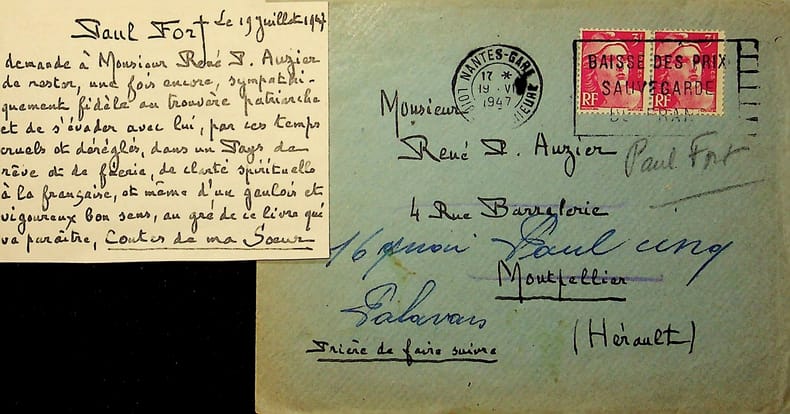 Paul Fort Le 19 Juillet 1947
demande à Monsieur René P. Auzier
de rester, une fois encore, sympathi-
quement fidèle au trouvère patriarche
et de s'évader avec lui, par ces temps
cruels et déréglés, dans un Pays de
rêve et de féerie, de clarté spirituelle
à la française, et même d'un gaulois et
vigoureux bon sens, au gré de ce livre qui
va paraître, Contes de ma Sœur
NANTES-GARE
17 *
19 VII
1947
LOIRE INFÉRIEURE
3F
RF
RF
BAISSE DES PRIX
SAUVEGARDE
DU FRANC
Monsieur
René P. Auzier
Paul Fort
4 Rue Barralerie
16 quai Paul cunq
Montpellier
Palavas
(Hérault)
Prière de faire suivre